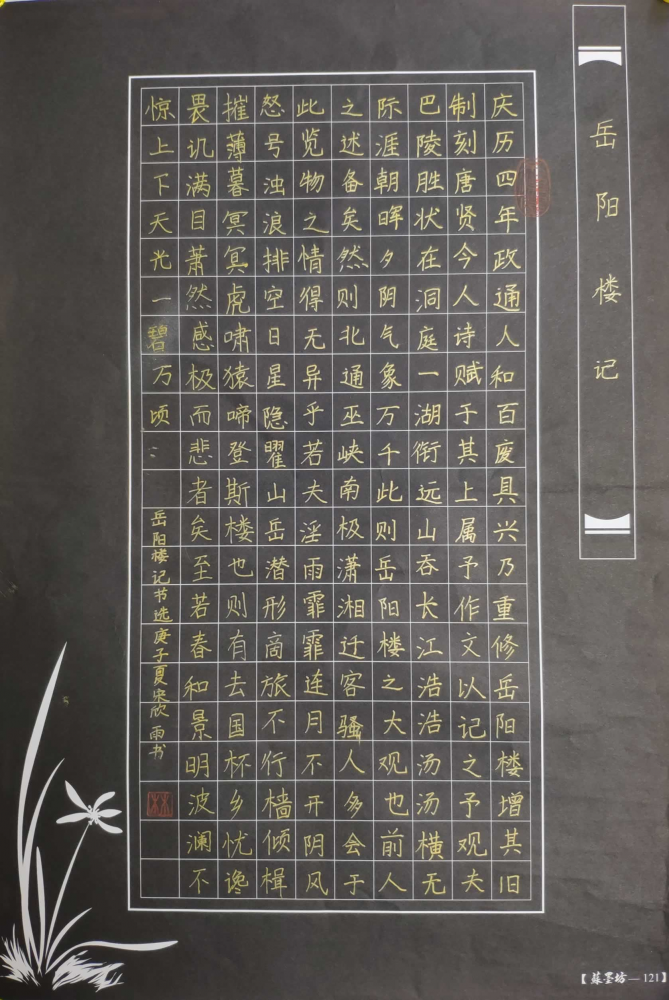 岳阳楼记
庆历四年政通人和百废具兴乃重修岳阳楼增其旧
制刻唐贤今人诗赋于其上属予作文以记之予观夫
巴陵胜状在洞庭一湖衔远山吞长江浩浩汤汤横无
际涯朝晖夕阴气象万千此则岳阳楼之大观也前人
之述备矣然则北通巫峡南极潇湘迁客骚人多会于
此览物之情得无异乎若夫淫雨霏霏连月不开阴风
怒号浊浪排空日星隐曜山岳潜形商旅不行樯倾楫
摧薄暮冥冥虎啸猿啼登斯楼也则有去国怀乡忧谗
畏讥满目萧然感极而悲者矣至若春和景明波澜不
惊上下天光一碧万顷：
岳阳楼记节选庚子夏宋欣雨书
【蘇墨坊—121】